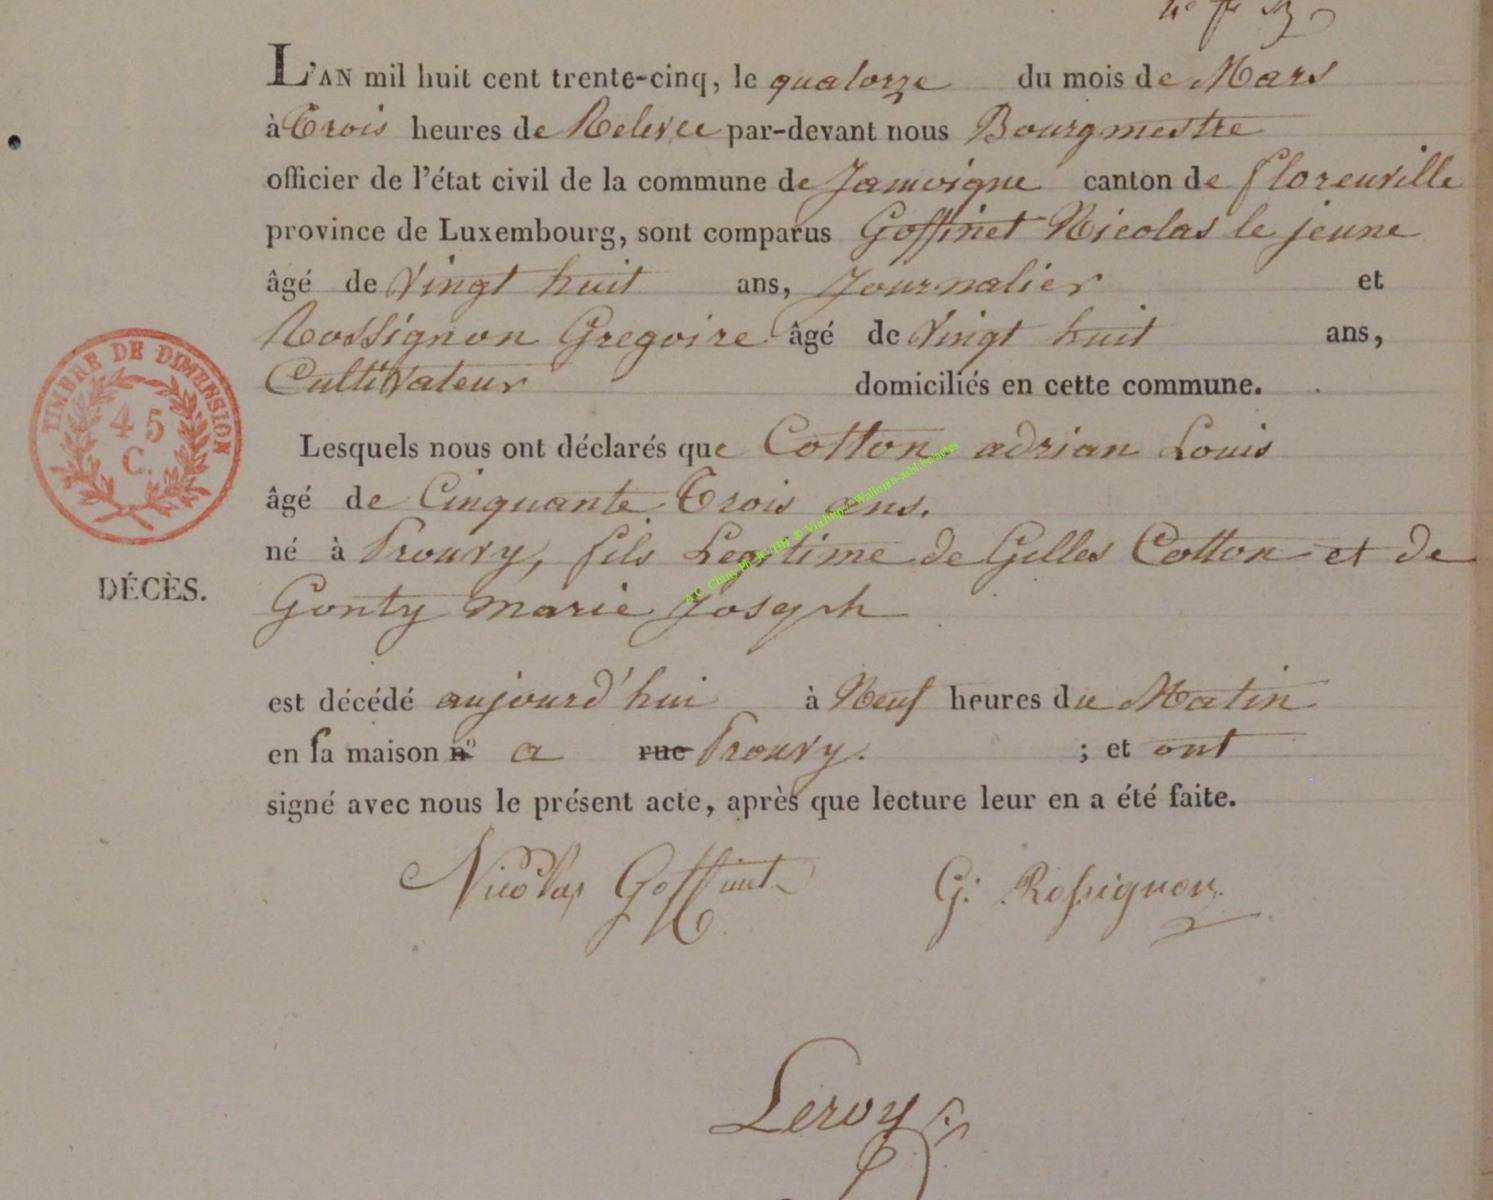 L'AN mil huit cent trente-cinq, le quatorze du mois de Mars
à Trois heures de Relevée par-devant nous Bourgmestre
officier de l'état civil de la commune de Jamoigne canton de florenville
province de Luxembourg, sont comparus Goffinet Nicolas le jeune
âgé de Vingt huit ans, Journalier et
Rossignon Gregoire âgé de Vingt huit ans,
Cultivateur domiciliés en cette commune.
TIMBRE DE DIMENSION
45
C.
Lesquels nous ont déclarés que Cotton adrian Louis
âgé de Cinquante Trois ans.
né à Prouvy, fils Legitime de Gilles Cotton et de
DÉCÈS.
Gonty marie Joseph
est décédé aujourd'hui à Neuf heures du Matin
en sa maison n° a rue Prouvy. ; et ont
signé avec nous le présent acte, après que lecture leur en a été faite.
Nicolas Goffinet G: Rossignon
Leroy